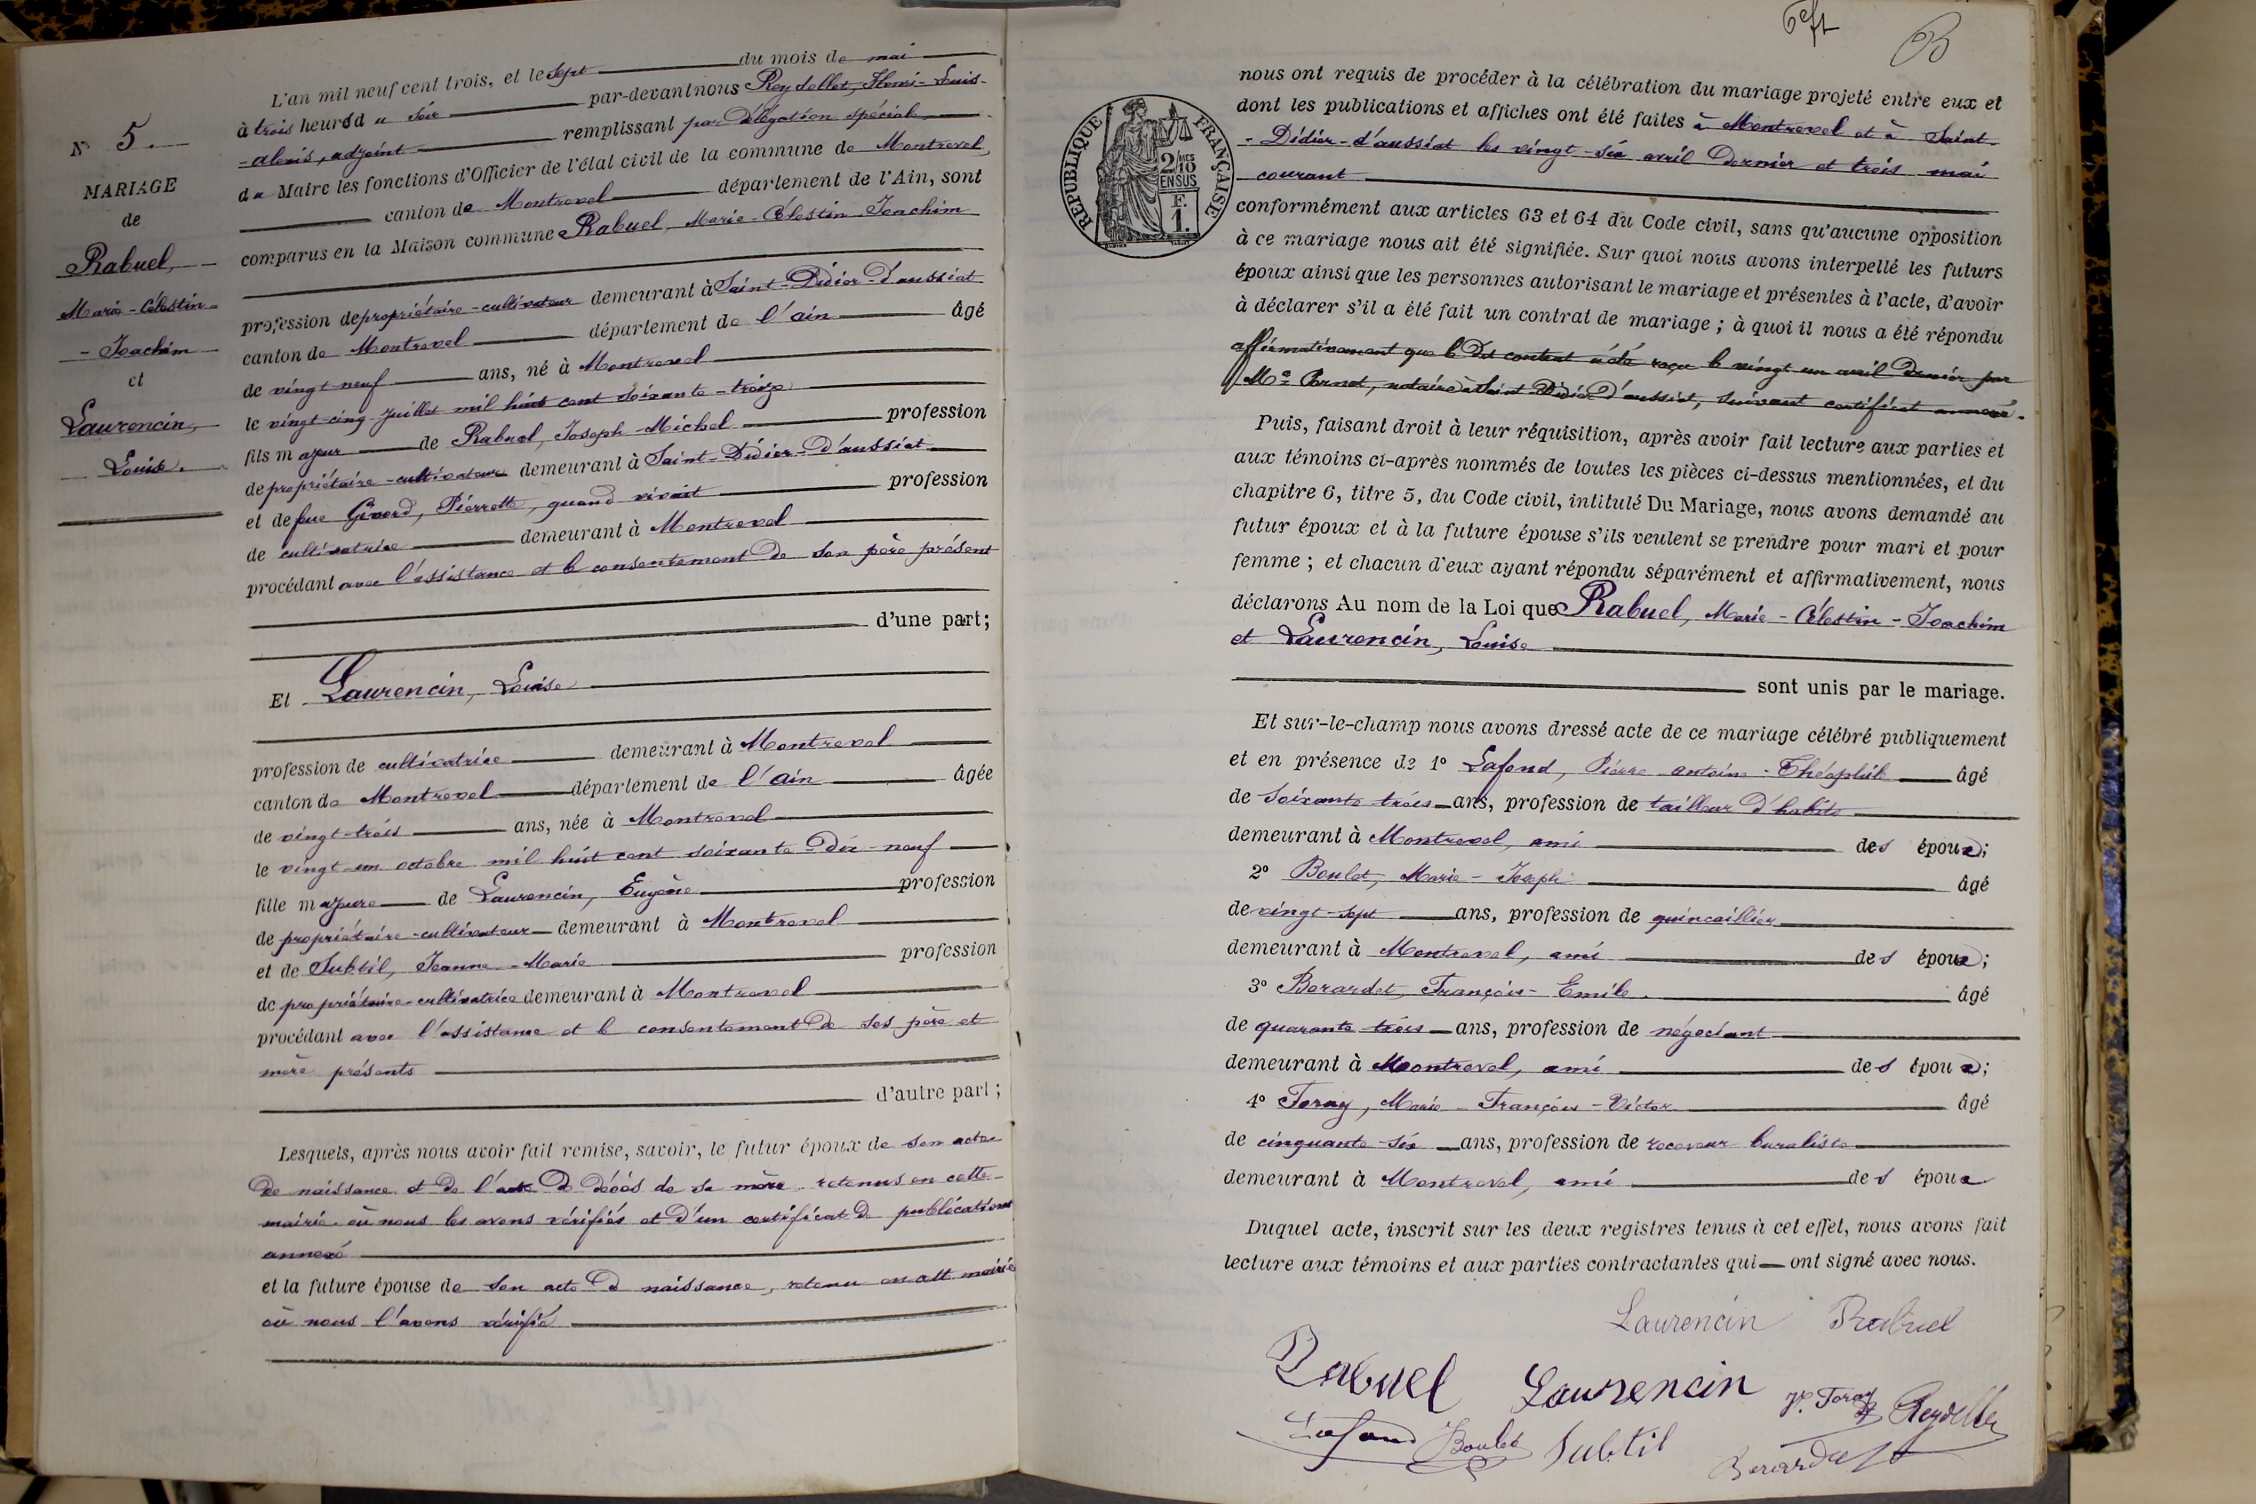 L'an mil neuf cent trois, et le sept du mois de mai
à trois heures du soir par-devant nous Reydellet, Henri-Louis-
-alexis, adjoint remplissant par délégation spéciale
du Maire les fonctions d'Officier de l'état civil de la commune de Montrevel,
canton de Montrevel département de l'Ain, sont
comparus en la Maison commune Rabuel, Marie-Célestin Joachim
N° 5.
MARIAGE
de
Rabuel,
Marie-Célestin-
-Joachim
et
Laurencin,
Louise.
profession de propriétaire-cultivateur demeurant à Saint-Didier-d'aussiat
canton de Montrevel département de l'ain âgé
de vingt-neuf ans, né à Montrevel
le vingt-cinq juillet mil huit cent soixante-treize
fils majeur de Rabuel, Joseph-Michel profession
de propriétaire-cultivateur demeurant à Saint-Didier-d'aussiat
et de feue Pierrette, quand vivait profession
de cultivatrice demeurant à Montrevel
procédant avec l'assistance et le consentement de son père présent
d'une part;
Et Laurencin, Louise
profession de cultivatrice demeurant à Montrevel
canton de Montrevel département de l'ain âgée
de vingt-trois ans, née à Montrevel
le vingt-un octobre mil huit cent soixante-dix-neuf
fille majeure de Laurencin, Eugène profession
de propriétaire-cultivateur demeurant à Montrevel
et de Subtil, Jeanne-Marie profession
de propriétaire-cultivatrice demeurant à Montrevel
procédant avec l'assistance et le consentement de ses père et
mère présents
d'autre part;
Lesquels, après nous avoir fait remise, savoir, le futur époux de son acte
de naissance et de l'acte de décès de sa mère retenus en cette
mairie où nous les avons vérifiés et d'un certificat de publications
annexé
et la future épouse de son acte de naissance, retenu en cette mairie
où nous l'avons vérifié
B
RÉPUBLIQUE FRANÇAISE
2/10 MES
EN SUS
F.
1.
nous ont requis de procéder à la célébration du mariage projeté entre eux et
dont les publications et affiches ont été faites à Montrevel et à Saint-
-Didier-d'aussiat les vingt-six avril dernier et trois mai
courant
conformément aux articles 63 et 64 du Code civil, sans qu'aucune opposition
à ce mariage nous ait été signifiée. Sur quoi nous avons interpellé les futurs
époux ainsi que les personnes autorisant le mariage et présentes à l'acte, d'avoir
à déclarer s'il a été fait un contrat de mariage ; à quoi il nous a été répondu
affirmativement que le dit contrat a été reçu le vingt un avril dernier par
Me notaire à Saint Didier d'aussiat, suivant certificat annexé.
Puis, faisant droit à leur réquisition, après avoir fait lecture aux parties et
aux témoins ci-après nommés de toutes les pièces ci-dessus mentionnées, et du
chapitre 6, titre 5, du Code civil, intitulé Du Mariage, nous avons demandé au
futur époux et à la future épouse s'ils veulent se prendre pour mari et pour
femme ; et chacun d'eux ayant répondu séparément et affirmativement, nous
déclarons Au nom de la Loi que Rabuel, Marie-Célestin-Joachim
et Laurencin, Louise
sont unis par le mariage.
Et sur-le-champ nous avons dressé acte de ce mariage célébré publiquement
et en présence de 1° Lafond, Pierre antoine-Théophile âgé
de soixante trois ans, profession de tailleur d'habits
demeurant à Montrevel, ami des époux;
2° Boulet, Marie-Joseph âgé
de vingt-sept ans, profession de quincaillier
demeurant à Montrevel, ami des époux;
3° Berardet, François-Emile. âgé
de quarante trois ans, profession de négociant
demeurant à Montrevel, ami des époux;
4° Foray, Marie-François-Victor âgé
de cinquante-six ans, profession de receveur buraliste
demeurant à Montrevel, ami des époux
Duquel acte, inscrit sur les deux registres tenus à cet effet, nous avons fait
lecture aux témoins et aux parties contractantes qui ont signé avec nous.
Laurencin Rabuel
Rabuel Laurencin Foray Reydellet
Lafond Boulet Subtil Berardet